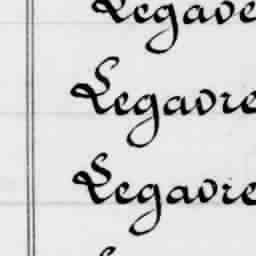 Legave
Legavre
Legavre